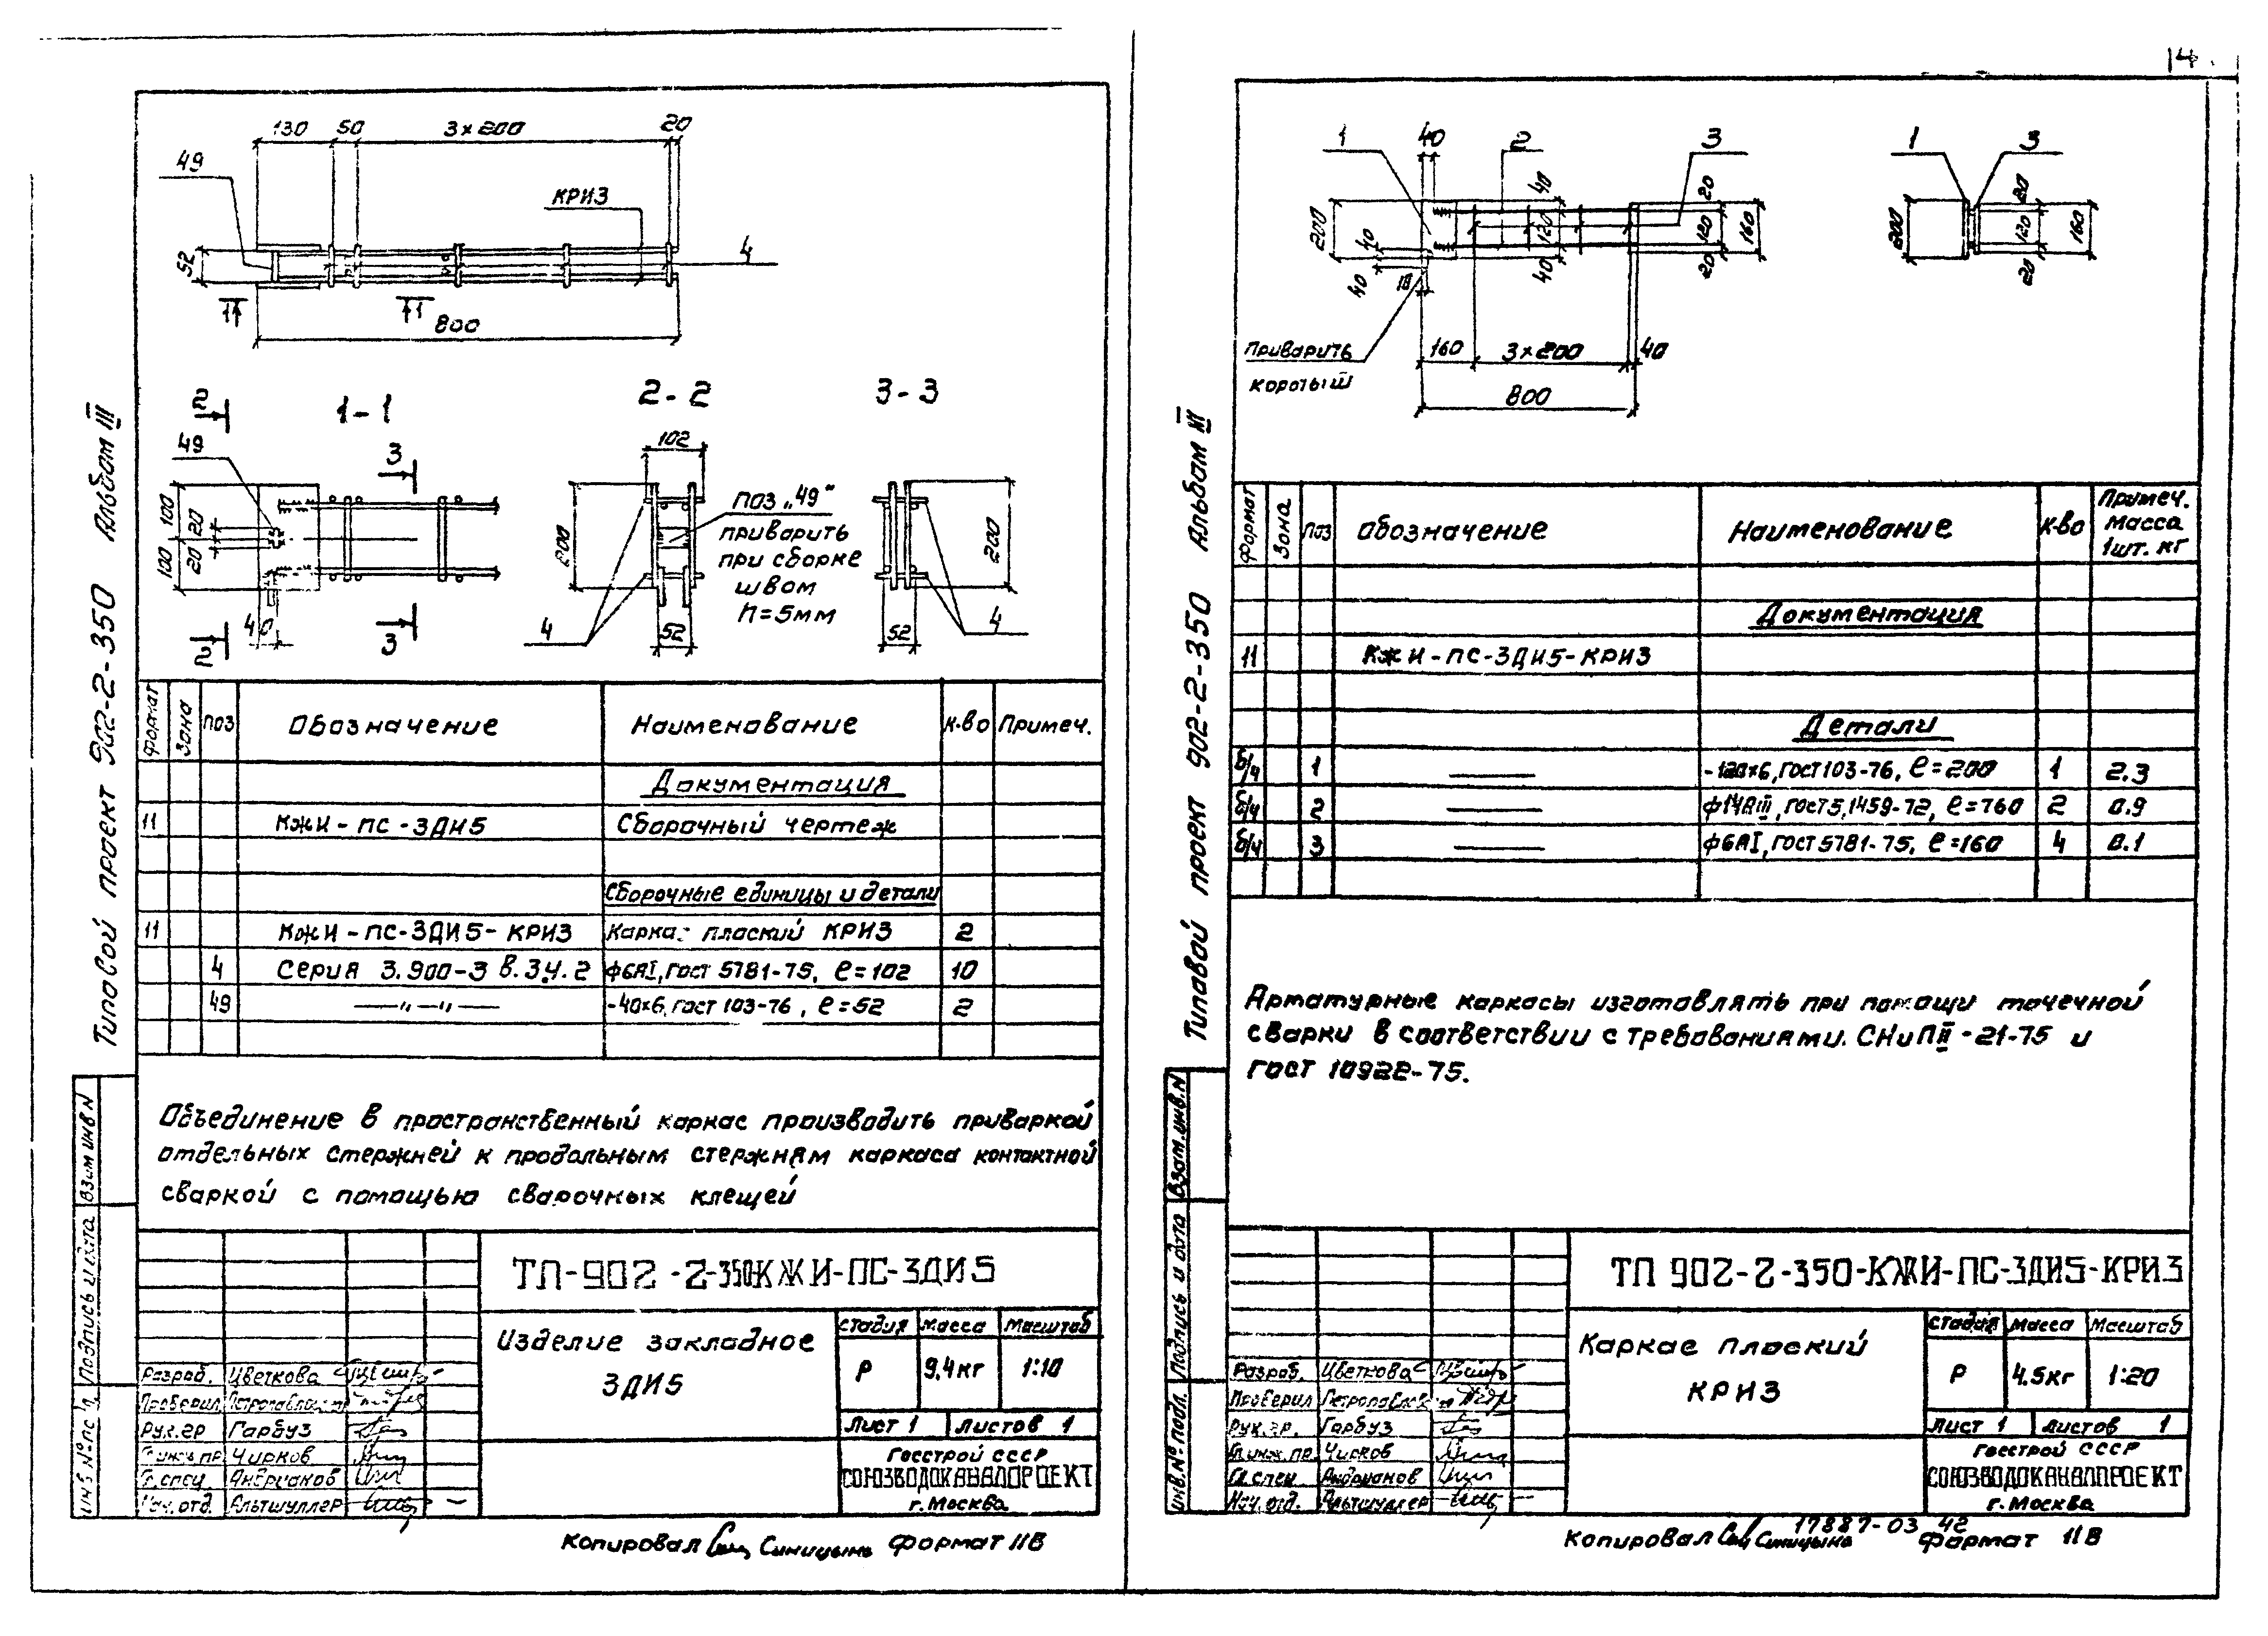 14
130 50 3×200 20
49
КРИЗ
4
52
1 1
800
2
1-1
2-2
3-3
49
3
102
100
20
20
100
200
ПОЗ „49"
приварить
при сборке
швом
h=5мм
200
40
2
3
4
52
52
4
Типовой проект 902-2-350 Альбом III
Формат Зона ПОЗ Обозначение Наименование К-во Примеч.
Документация
11 КЖИ-ПС-ЗДИ5 Сборочный чертеж
Сборочные единицы и детали
11 КЖИ-ПС-ЗДИ5-КРИЗ Каркас плоский КРИЗ 2
4 Серия 3.900-3 в.3ч.2 ф6АI, ГОСТ 5781-75, ℓ=102 10
49 —〃—〃— -40×6, ГОСТ 103-76, ℓ=52 2
Объединение в пространственный каркас производить приваркой
отдельных стержней к продольным стержням каркаса контактной
сваркой с помощью сварочных клещей
Инв № Подпись и дата Взам инв N
ТП-902-2-350КЖИ-ПС-ЗДИ5
Изделие закладное
ЗДИ5
Стадия Масса Масштаб
Р 9,4кг 1:10
Лист 1 Листов 1
Госстрой СССР
СОЮЗВОДОКАНАЛПРОЕКТ
г. Москва
Разраб. Цветкова
Проверил
Рук.гр Гарбуз
Чирков
Андрианов
Нач.отд. Альтшуллер
Копировал Синицына Формат 11В
1 40 2 3
200
40
40
18
40
120
40
20
120
20
160
Приварить
короткий
160 3×200 40
800
1 3
200
20
120
20
160
Типовой проект 902-2-350 Альбом III
Формат Зона ПОЗ Обозначение Наименование К-во Примеч. Масса 1шт. кг
Документация
11 КЖИ-ПС-ЗДИ5-КРИЗ
Детали
б/ч 1 ——— -120×6, ГОСТ 103-76, ℓ=200 1 2.3
б/ч 2 ——— ф14АIII, ГОСТ 5.1459-72, ℓ=760 2 0.9
б/ч 3 ——— ф6АI, ГОСТ 5781-75, ℓ=160 4 0.1
Арматурные каркасы изготавлять при помощи точечной
сварки в соответствии с требованиями. СНиП II-21-75 и
ГОСТ 10922-75.
Инв.№ подл. Подпись и дата Взам.инв.N
ТП 902-2-350-КЖИ-ПС-ЗДИ5-КРИЗ
Каркас плоский
КРИЗ
Стадия Масса Масштаб
Р 4.5кг 1:20
Лист 1 Листов 1
Госстрой СССР
СОЮЗВОДОКАНАЛПРОЕКТ
г. Москва
Разраб. Цветкова
Проверил
Рук.гр. Гарбуз
Гл.инж.пр. Чирков
Гл.спец. Андрианов
Нач.отд. Альтшуллер
17887-03 42
Копировал Синицына Формат 11В